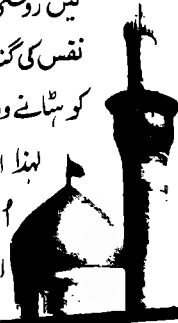 میں روشنی
نفس کی گند
کو ہٹانے و
لہذا ا
اُ
ا